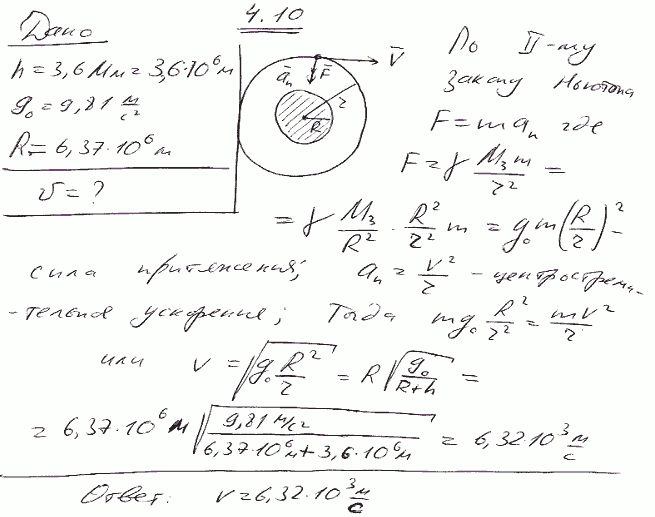 4.10
Дано
h = 3,6 Мм = 3,6·10⁶ м
g₀ = 9,81 м/с²
R = 6,37·10⁶ м
v = ?
a̅ₙ F̅ V̅
r
R
По II-му
закону Ньютона
F = maₙ где
F = γ M₃m/r² =
= γ M₃/R² · R²/r² m = g₀m(R/r)² -
сила притяжения; aₙ = v²/r - центростреми-
-тельное ускорение; Тогда mg₀ R²/r² = mv²/r
или v = √(g₀ R²/r) = R √(g₀/(R+h)) =
= 6,37·10⁶ м √(9,81 м/с² / (6,37·10⁶м + 3,6·10⁶м)) = 6,32·10³ м/с
Ответ: v = 6,32·10³ м/с